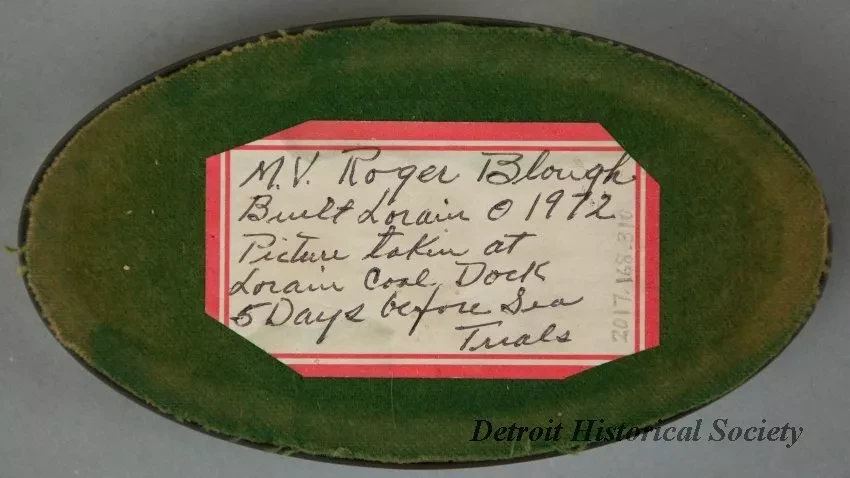 M.V. Roger Blough
Built Lorain O 1972
Picture taken at
Lorain Coal Dock
5 Days before Sea
Trials
2017.168.310
Detroit Historical Society